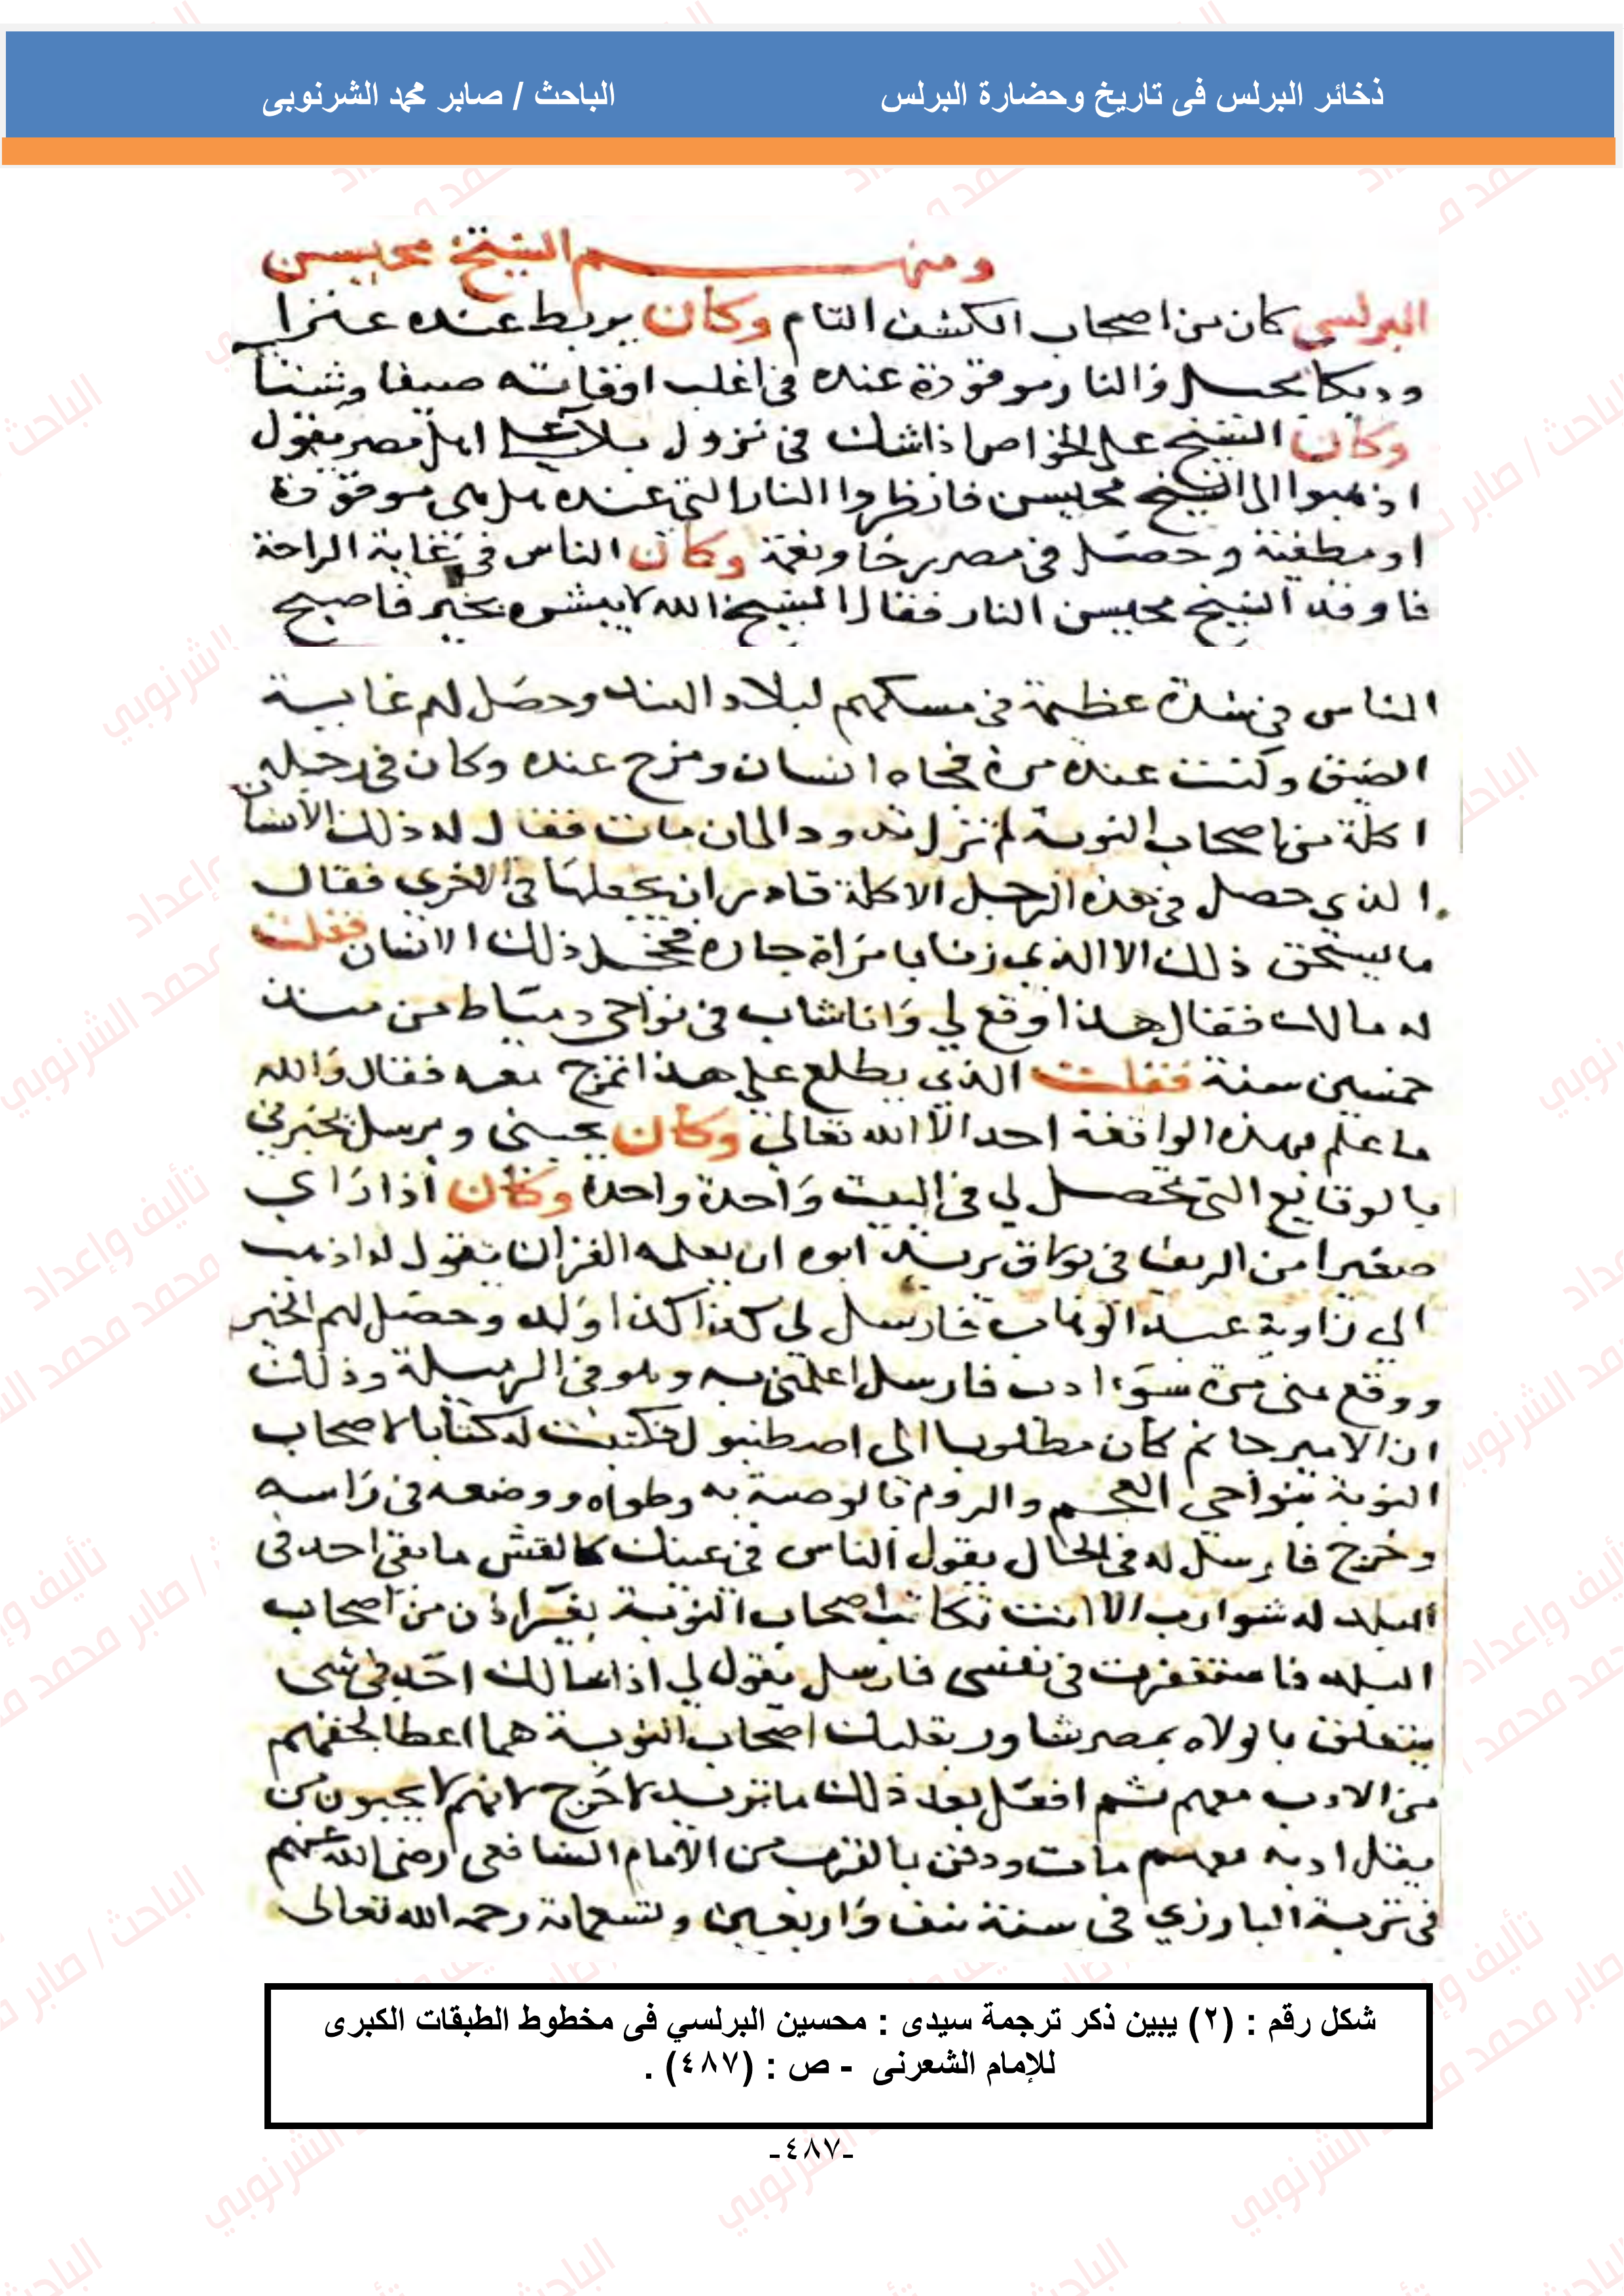 ذخائر البرلس فى تاريخ وحضارة البرلس
الباحث / صابر محمد الشرنوبى
ومنهم الشيخ محيسن
البرلسي كان من اصحاب الكشف التام وكان يربط عنده عنزا
وديكا بحبل والنار موقودة عنده في اغلب اوقاته صيفا وشتنأ
وكان الشيخ على الخواص اذا شك في نزول بلاء على اهل مصر يقول
اذهبوا الى الشيخ محيسن فانظروا النار التي عنده هل هي موقودة
او مطفية وحصل في مصر رخا ونعمة وكان الناس في غاية الراحة
فاوقد الشيخ محيسن النار فقال الشيخ الله لا يبشره بخير فاصبح
الناس في شدة عظيمة في مسكهم لبلاد الهند وحصل لهم غاية
الضيق وكنت عنده مرة فجاه انسان ومزح عنده وكان في رجله
اكلة من اصحاب النوبة لم تزل تدود الى ان مات فقال له ذلك الانسان
الذي حصل في هذه الرجل الاكلة قادر ان يجعلها في الاخرى فقال
ما يستحق ذلك الا الذي زنا بامراة جاره فخجل ذلك الانسان فقلت
له مالك فقال هذا وقع لي وانا شاب في نواحي دمياط من منذ
خمسين سنة فقلت الذي يطلع على هذا تمزح معه فقال والله
ما علم بهذه الواقعة احد الا الله تعالى وكان يحبني ويرسل يخبرني
بالوقايع التي تحصل لي في البيت واحدة واحدة وكان اذا راي
صغيرا من الريف في بولاق يريد ابوه ان يعلمه القران يقول له اذهب
الي زاوية عبد الوهاب فارسل لي كذا كذا ولد وحصل لهم الخير
ووقع مني مرة سوء ادب فارسل اعلمني به وهو في الرميلة وذلك
ان الامير جانم كان مطلوبا الى اصطنبول فكتبت له كتابا لاصحاب
النوبة بنواحي العجم والروم بالوصية به وطواه ووضعه في راسه
وخرج فارسل له في الحال يقول الناس في عينك كالقش ما بقي احد في
البلد له شوارب الا انت تكاتب اصحاب النوبة بغير اذن من اصحاب
البلد فاستغفرت في نفسي فارسل يقول لي اذا سالك احد في شي
يتعلق بالولاه بمصر شاور بقلبك اصحاب النوبة هما اعطا لحقهم
من الادب معهم ثم افعل بعد ذلك ما تريد لا حرج لانهم لا يحبون من
يقل ادبه معهم مات ودفن بالقرب من الامام الشافعي رضي الله عنهم
في تربة البارزي في سنة نيف واربعين وتسعماية رحمه الله تعالى
شكل رقم : (٢) يبين ذكر ترجمة سيدى : محسين البرلسي فى مخطوط الطبقات الكبرى
للإمام الشعرنى - ص : (٤٨٧) .
-٤٨٧-